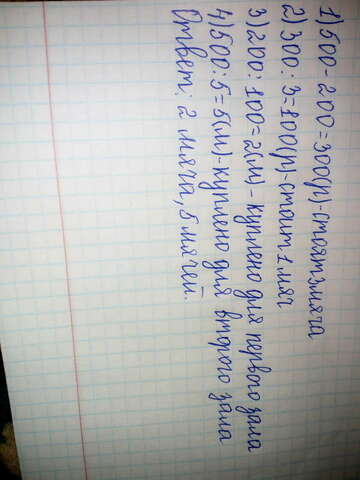 1) 500-200=300(р)-стоят 3 мяча
2) 300:3=100(р)-стоит 1 мяч
3) 200:100=2(м)- куплено для первого зала
4) 500:5=5(м)-куплено для второго зала
Ответ: 2 мяча, 5 мячей.